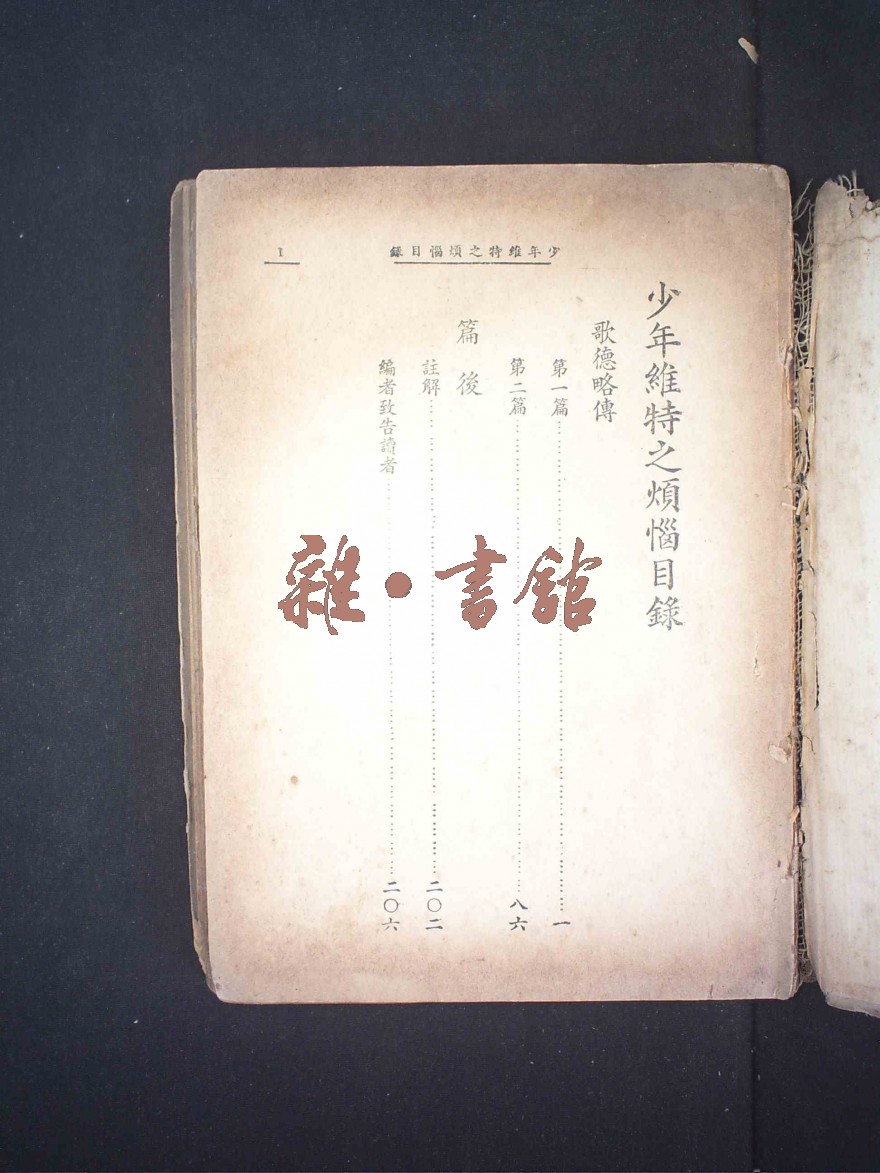 少年維特之煩惱目錄
I
少年維特之煩惱目錄
歌德略傳
第一篇……一
第二篇……八六
篇後
註解……二〇二
編者致告讀者……二〇六
雜•書館